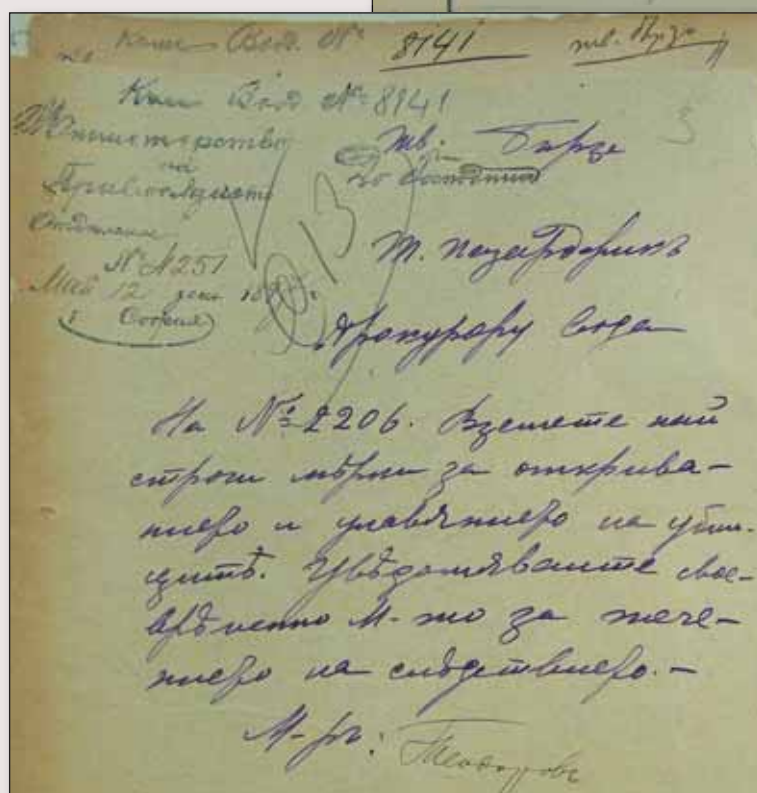 8141
№ 8141
Министерство
на
Правосъдието
Отделение
№ 251
Май 12 день
София
тв. Бърза
Т. Пазарджикъ
Прокурору Съда
На № 2206. Вземете най
строги мѣрки за открива-
нието и улавянието на убий-
цитѣ. Увѣдомявайте свое-
врѣменно М-то за тече-
нието на слѣдствието.-
М-ръ: Теодоровъ